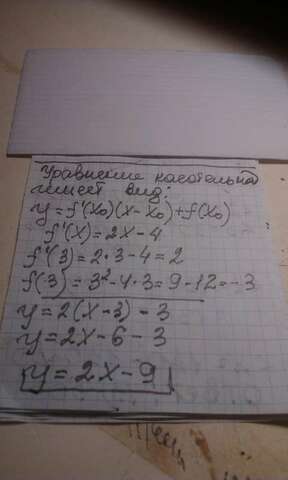 Уравнение касательной
имеет вид:
y = f'(x₀)(x - x₀) + f(x₀)
f'(x) = 2x - 4
f'(3) = 2·3 - 4 = 2
f(3) = 3² - 4·3 = 9 - 12 = -3
y = 2(x - 3) - 3
y = 2x - 6 - 3
y = 2x - 9